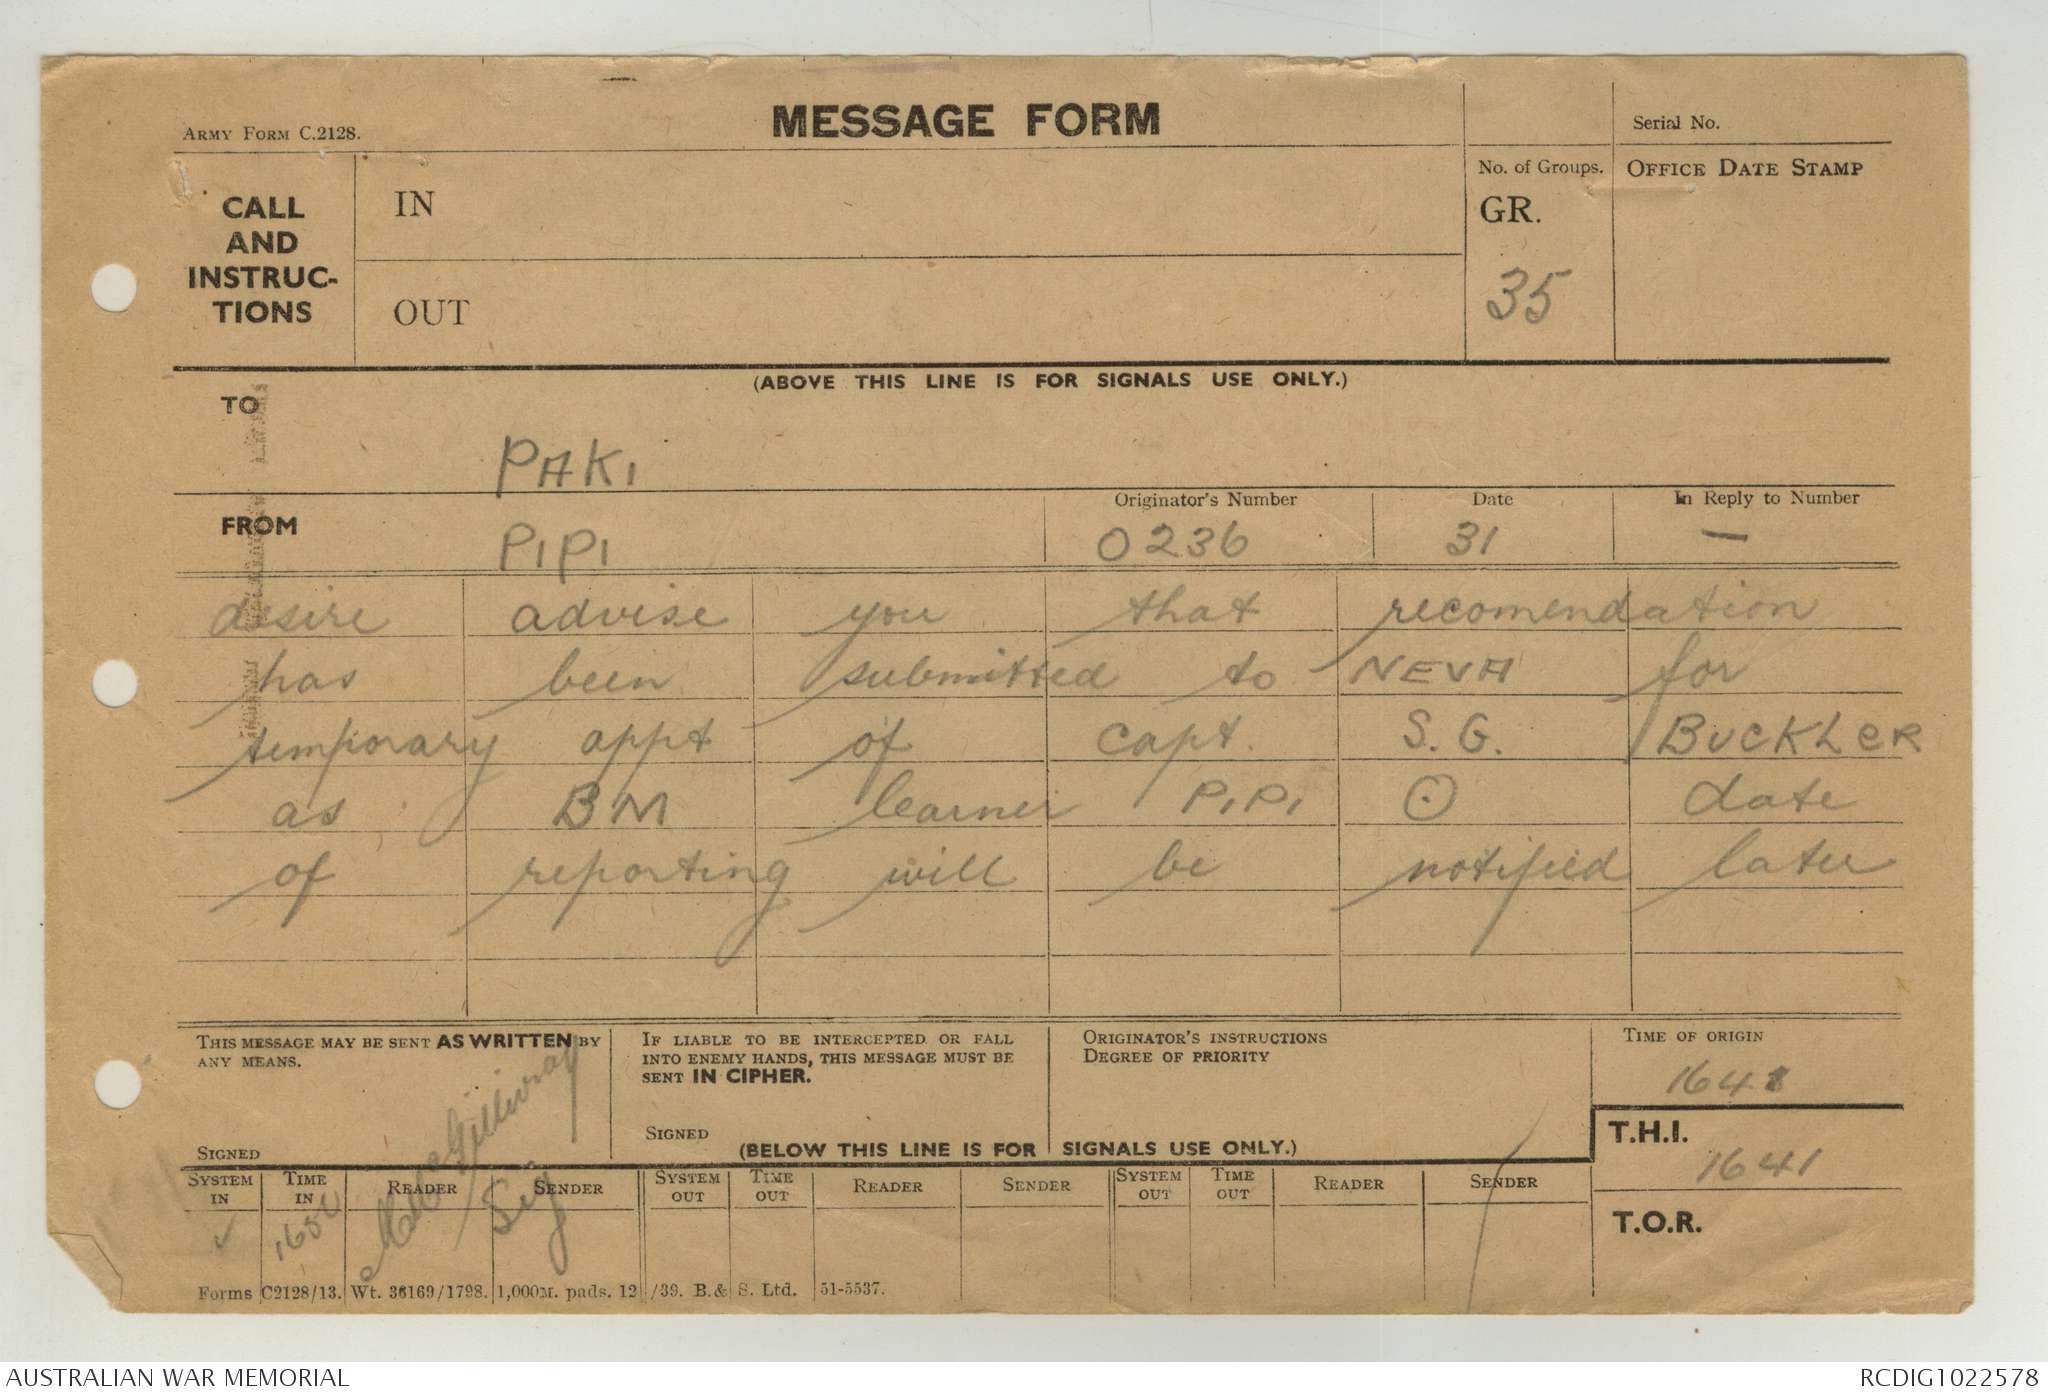 ARMY FORM C.2128.
MESSAGE FORM
Serial No.
CALL AND INSTRUC-TIONS
IN
OUT
No. of Groups.
GR.
35
OFFICE DATE STAMP
(ABOVE THIS LINE IS FOR SIGNALS USE ONLY.)
TO
PAKI
FROM
PIPI
Originator's Number
0236
Date
31
In Reply to Number
—
desire advise you that recomendation
has been submitted to NEVA for
temporary appt of Capt. S. G. BUCKLER
as BM learner PIPI ⊙ date
of reporting will be notified later
THIS MESSAGE MAY BE SENT AS WRITTEN BY
ANY MEANS.
SIGNED
IF LIABLE TO BE INTERCEPTED OR FALL
INTO ENEMY HANDS, THIS MESSAGE MUST BE
SENT IN CIPHER.
SIGNED
ORIGINATOR'S INSTRUCTIONS
DEGREE OF PRIORITY
TIME OF ORIGIN
1641
(BELOW THIS LINE IS FOR SIGNALS USE ONLY.)
T.H.I.
1641
T.O.R.
SYSTEM IN
TIME IN
READER
SENDER
SYSTEM OUT
TIME OUT
READER
SENDER
SYSTEM OUT
TIME OUT
READER
SENDER
Sig
Forms C2128/13. Wt. 36169/1798. 1,000M. pads. 12/39. B. & S. Ltd. 51-5537.
AUSTRALIAN WAR MEMORIAL
RCDIG1022578